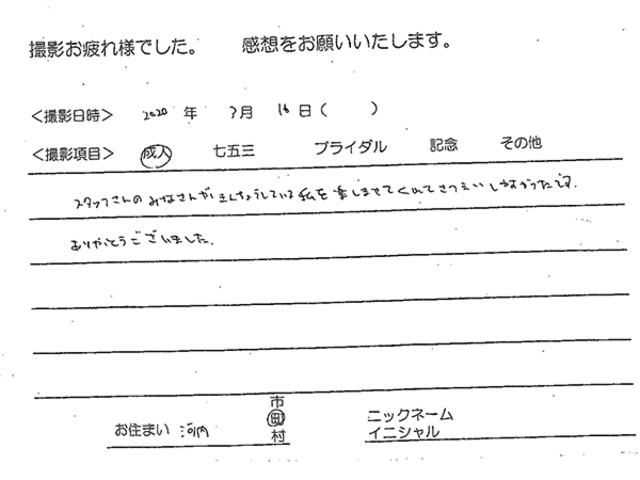 撮影お疲れ様でした。 感想をお願いいたします。
<撮影日時> 2020 年 7月 16日( )
<撮影項目> 成人 七五三 ブライダル 記念 その他
スタッフさんのみなさんがきんちょうしている私を楽しませてくれてさつえいしやすかったです。
ありがとうございました。
お住まい 河内 市 町 村
ニックネーム
イニシャル